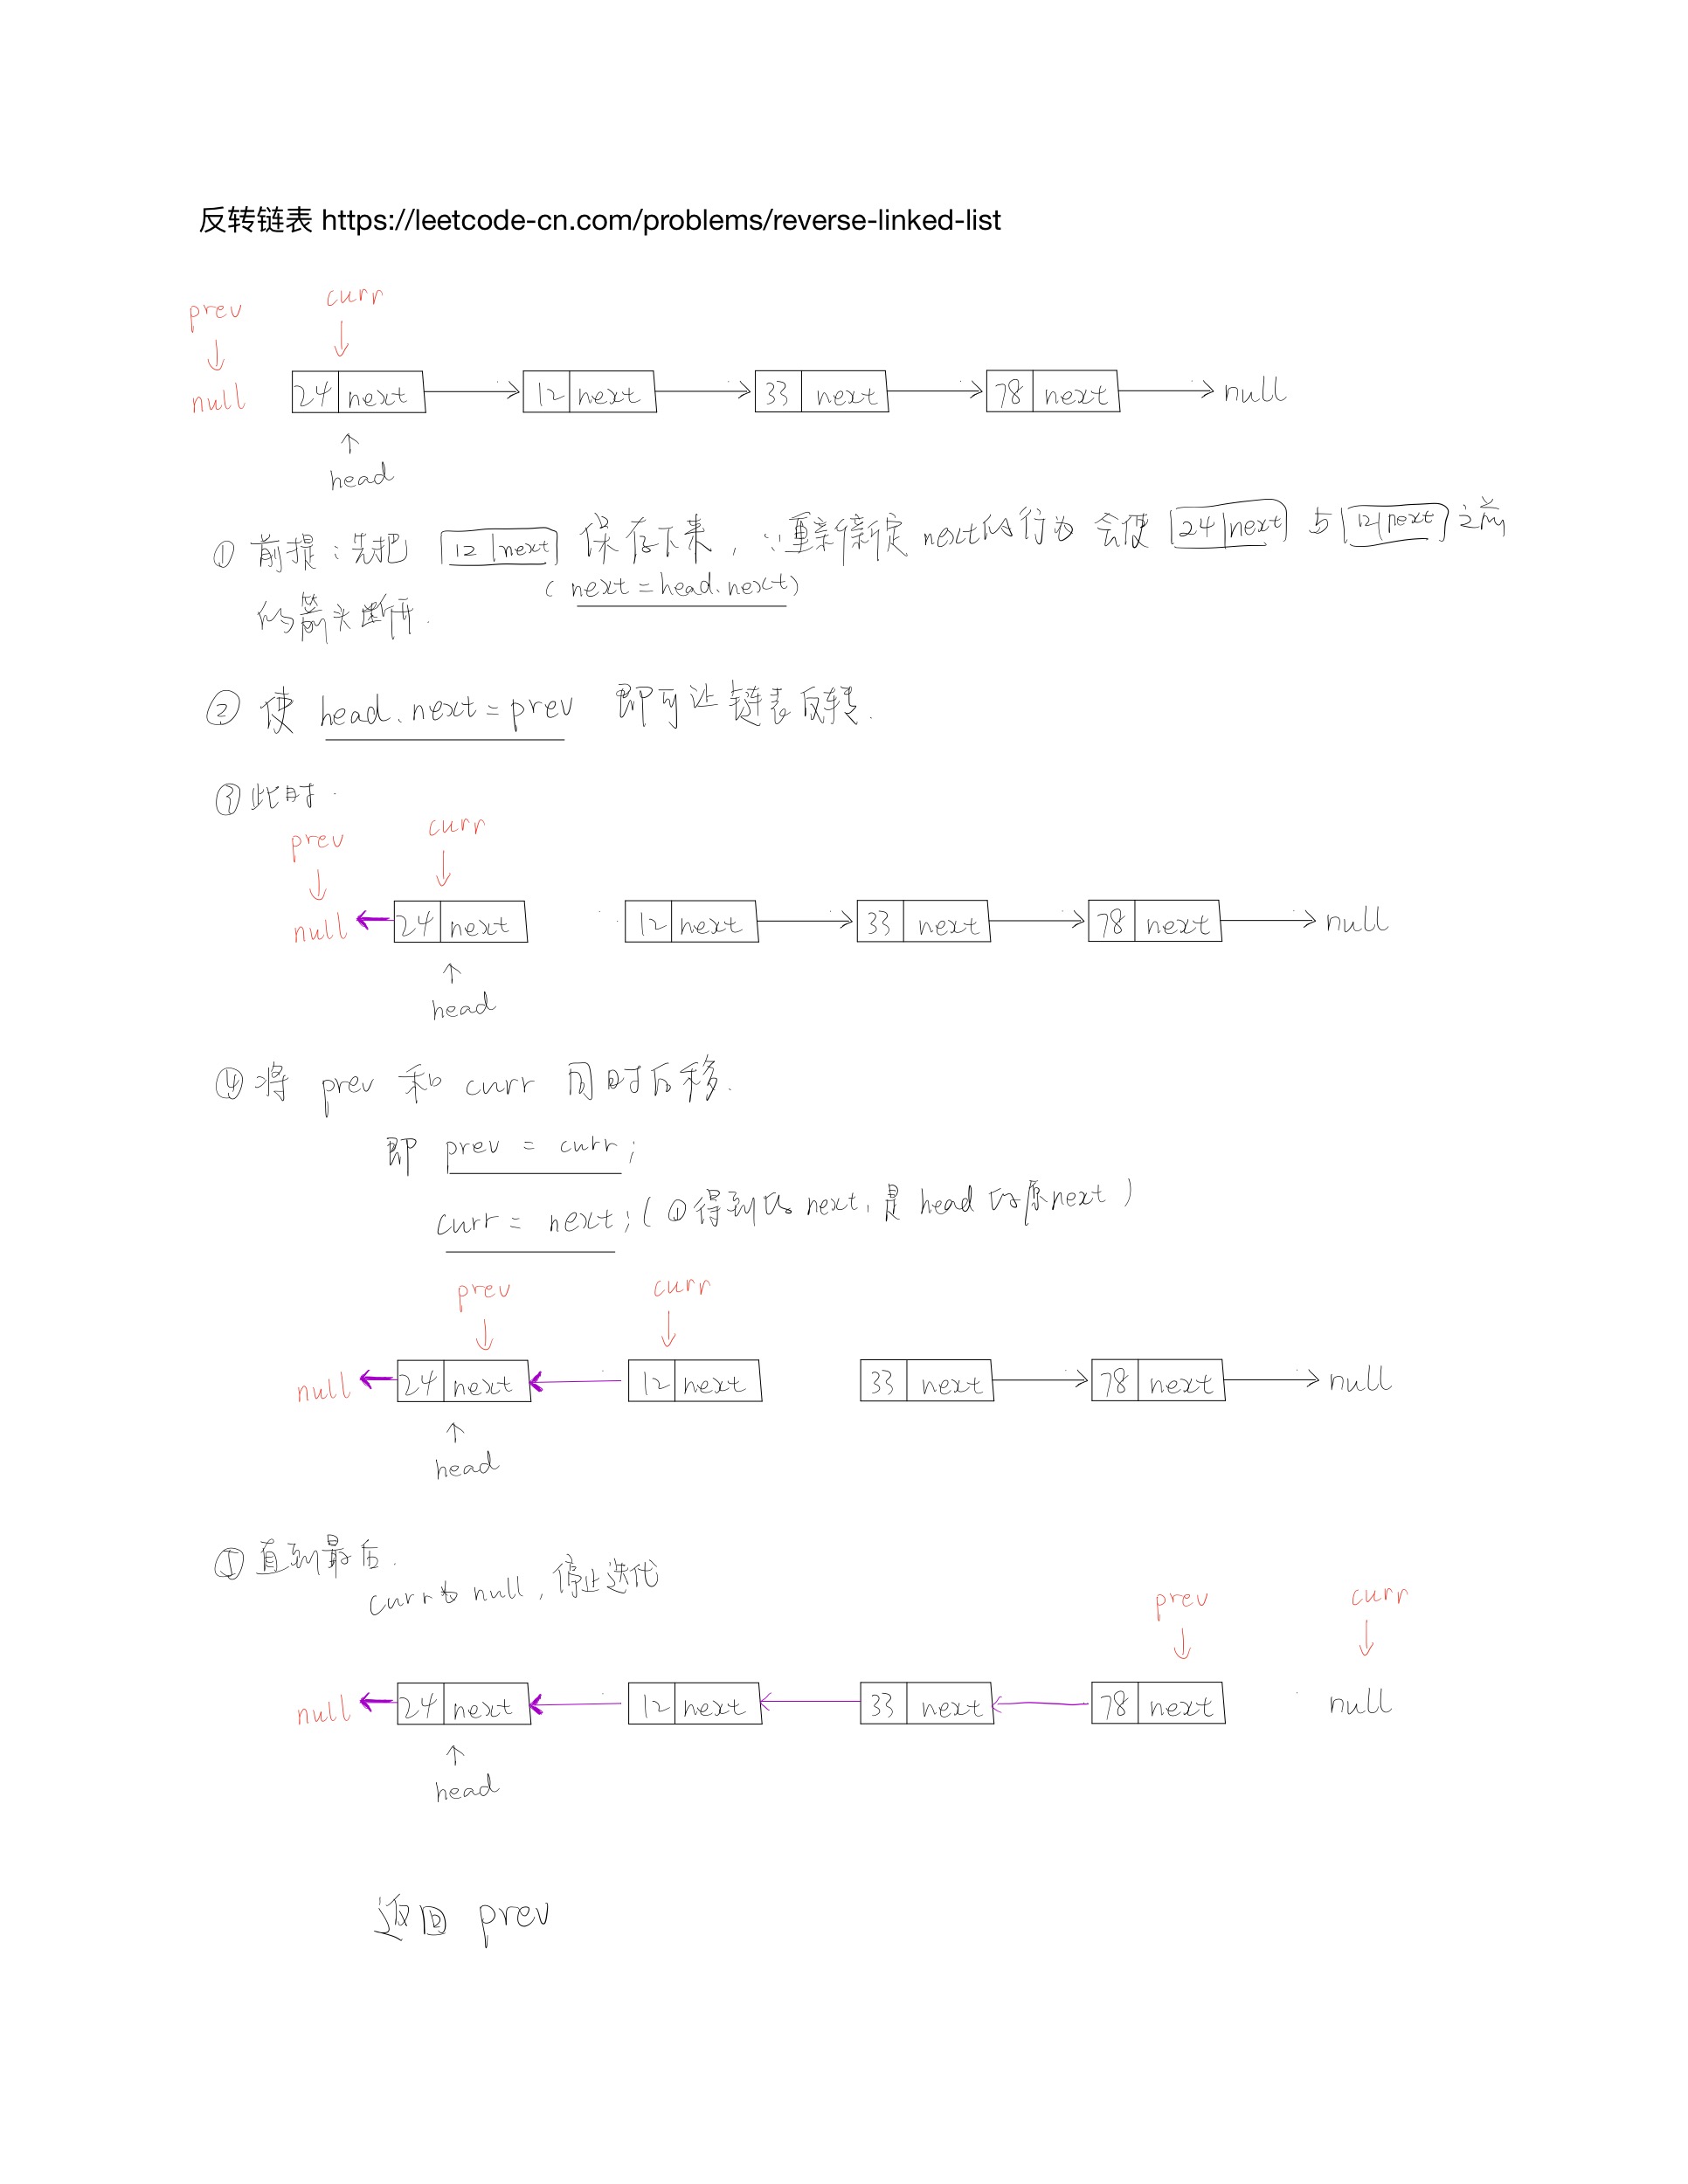 反转链表 https://leetcode-cn.com/problems/reverse-linked-list
prev curr
null 24 next 12 next 33 next 78 next null
head
① 前提：先把 12 next 保存下来，∵重新定 next的行为 会使 24 next 与 12 next 之间
(next = head.next)
的箭头断开.
② 使 head.next = prev 即可让链表反转.
③ 此时.
prev curr
null 24 next 12 next 33 next 78 next null
head
④ 将 prev 和 curr 同时后移.
即 prev = curr;
curr = next; (①得到的 next, 是 head 的原next)
prev curr
null 24 next 12 next 33 next 78 next null
head
⑤ 直到最后.
curr为 null, 停止迭代
prev curr
null 24 next 12 next 33 next 78 next null
head
返回 prev